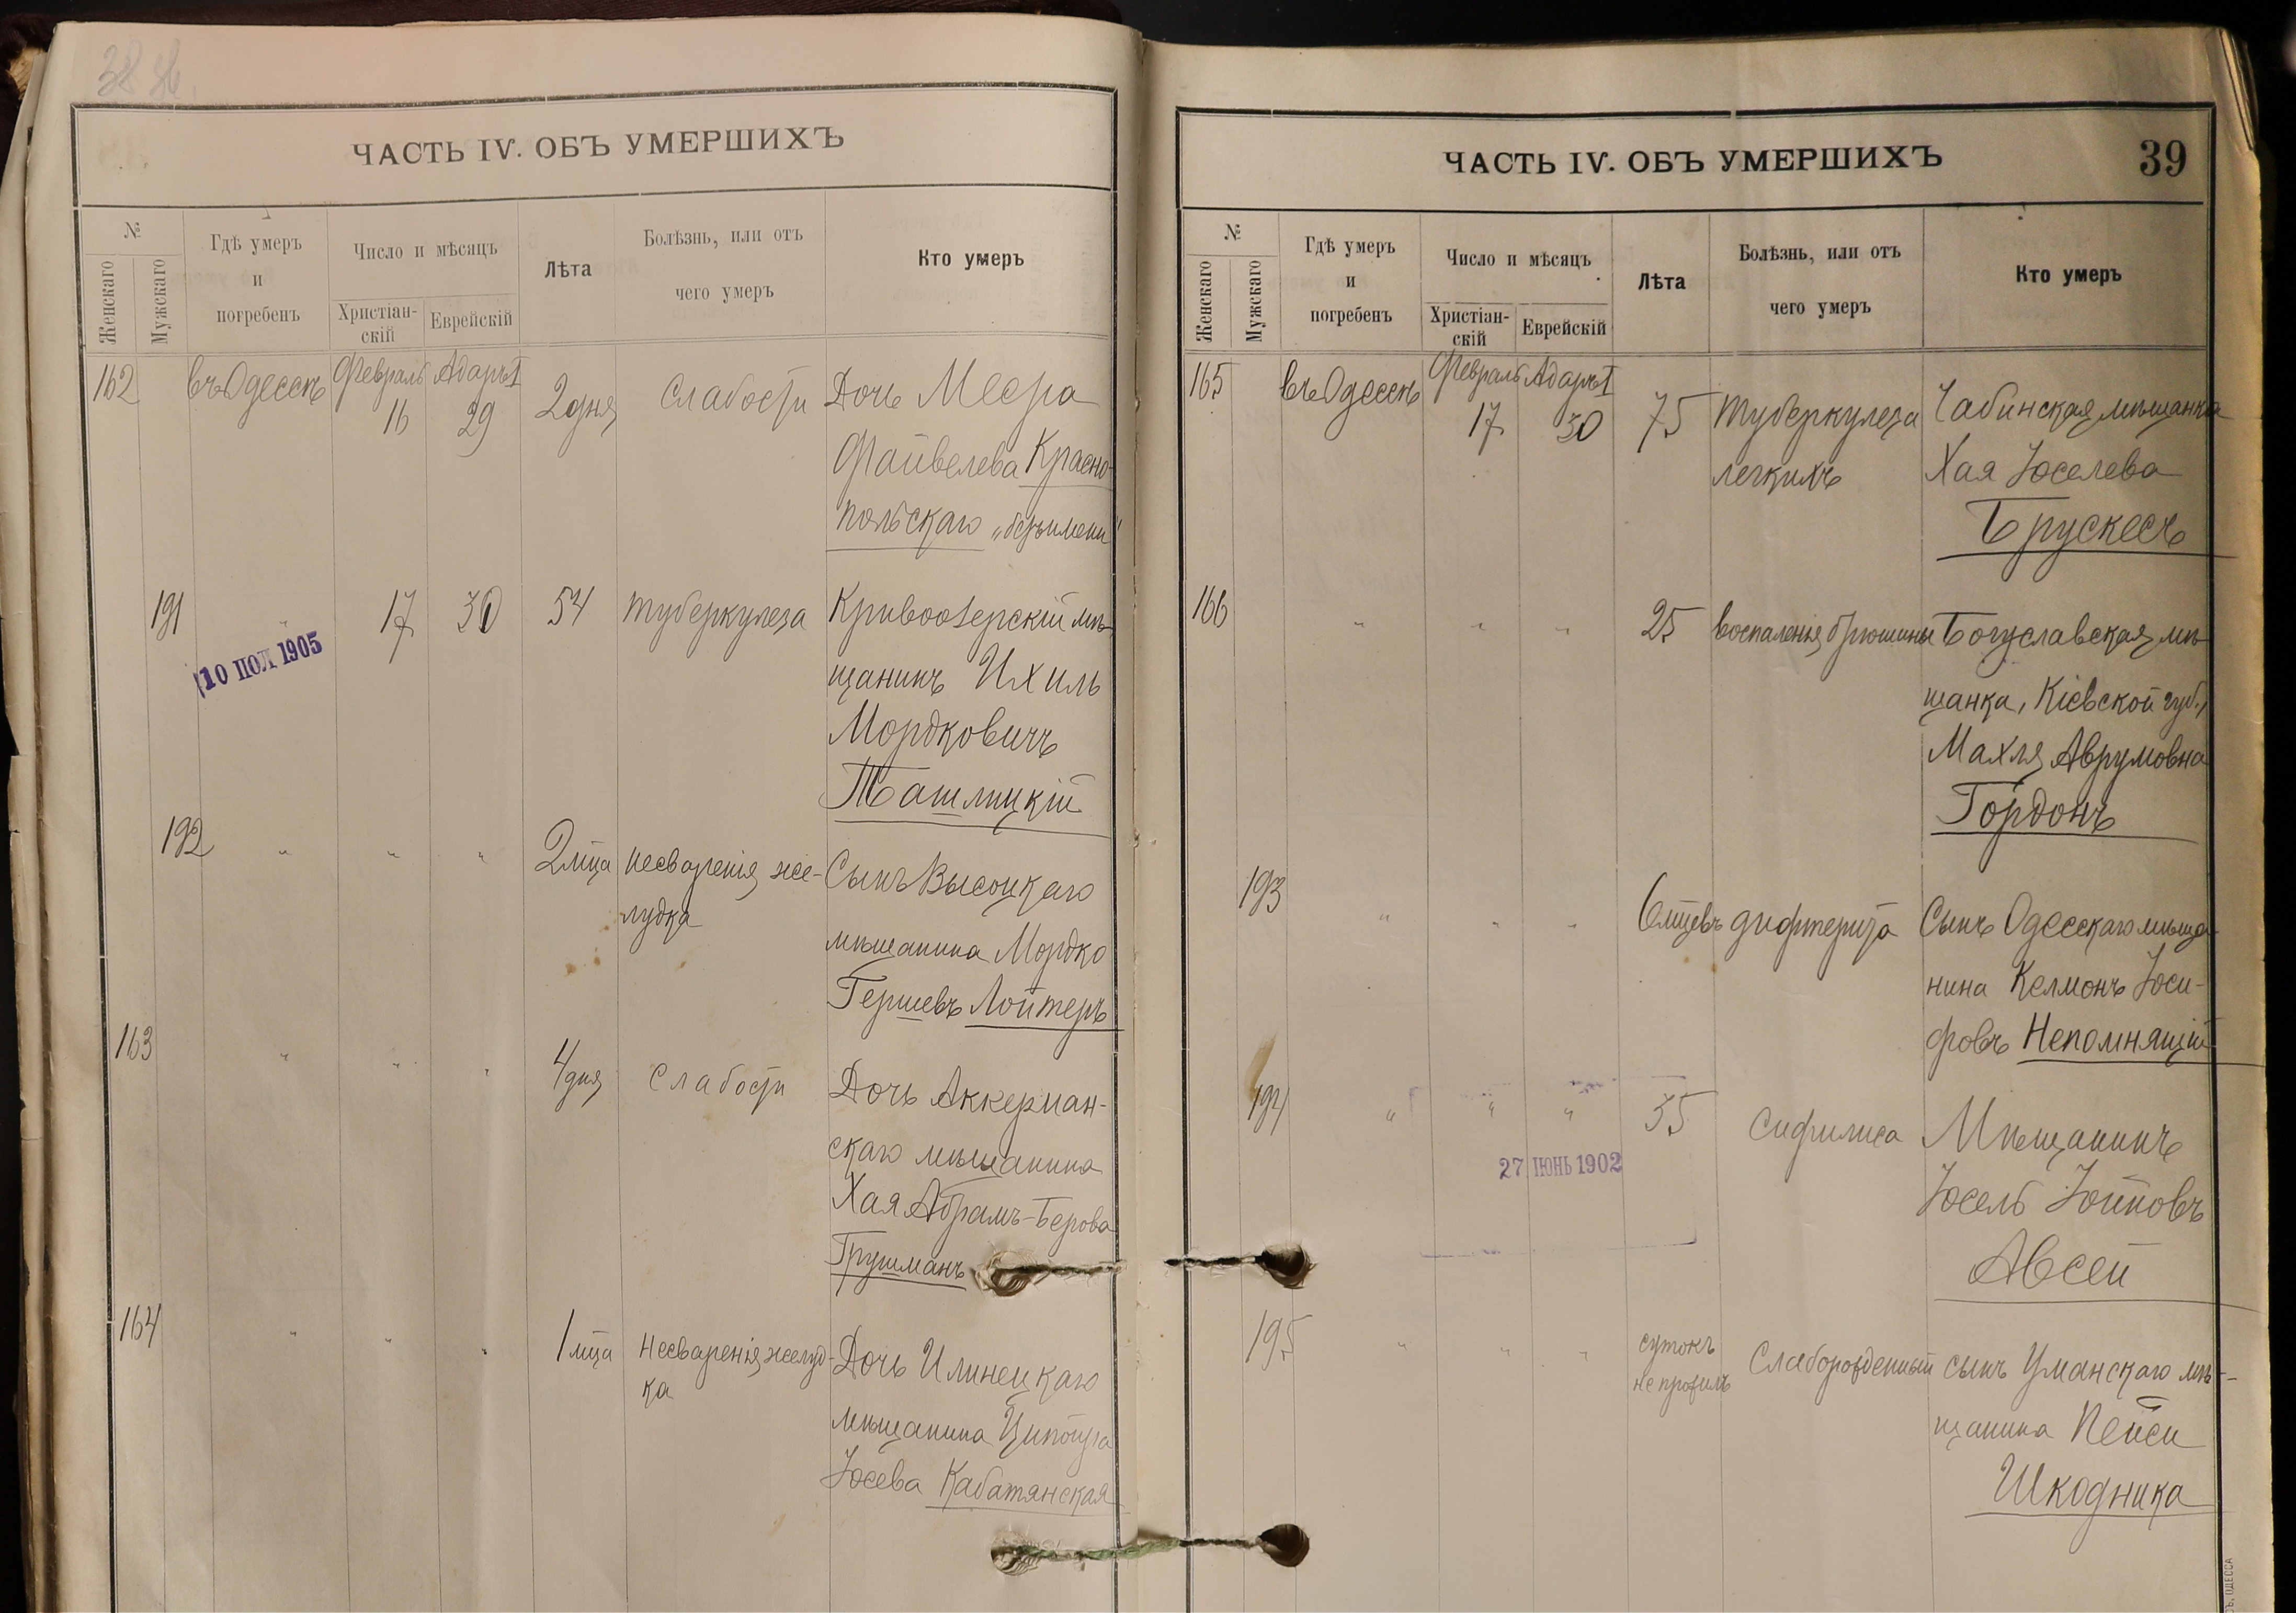 38 об.
ЧАСТЬ IV. ОБЪ УМЕРШИХЪ
№
Женскаго
Мужскаго
Гдѣ умеръ
и
погребенъ
Число и мѣсяцъ
Христіан-
скій
Еврейскій
Лѣта
Болѣзнь, или отъ
чего умеръ
Кто умеръ
162 въ Одессѣ Февраль Адаръ I
16 29 2 дня Слабости Дочь Меера
Файвелева Красно-
польскаго „безъ имени“
191 " 17 30 54 туберкулеза Кривоозерскій мѣ-
10 ИЮЛ 1905
щанинъ Ихиль
Мордковичъ
Ташлицкій
192 " " " 2 мца несваренія же-
лудка
Сынъ Высоцкаго
мѣщанина Мордко
Гершевъ Лойтеръ
163 " " " 4 дня Слабости Дочь Аккерман-
скаго мѣщанина
Хая Абрамъ-Берова
Грушманъ
164 " " " 1 мца Несваренія желуд-
ка
Дочь Илинецкаго
мѣщанина Ципойра
Іосева Кабатянская
ЧАСТЬ IV. ОБЪ УМЕРШИХЪ
39
№
Женскаго
Мужскаго
Гдѣ умеръ
и
погребенъ
Число и мѣсяцъ
Христіан-
скій
Еврейскій
Лѣта
Болѣзнь, или отъ
чего умеръ
Кто умеръ
165 въ Одессѣ Февраль Адаръ I
17 30 75 туберкулеза
легкихъ
Чабинская мѣщанка
Хая Іоселева
Брускесъ
166 " " " 25 воспаленія брюшины Богуславская мѣ-
щанка, Кіевской губ.,
Махля Аврумовна
Гордонъ
193 " " " 6 мцевъ дифтерита Сынъ Одесскаго мѣща-
нина Келмонъ Іоси-
фовъ Непомнящій
194 " " " 35 Сифилиса Мѣщанинъ
27 ІЮНЬ 1902
Іосель Іойновъ
Авсей
195 " " " сутокъ
не прожилъ
Слаборожденный сынъ Уманскаго мѣ-
щанина Пейси
Шкодника
ОДЕССА